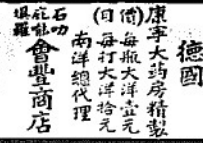 德國
康寧大药房精製
價每瓶大洋壹元
目每打大洋拾元
南洋總代理
石叻
庇能
填羅
會豐商店